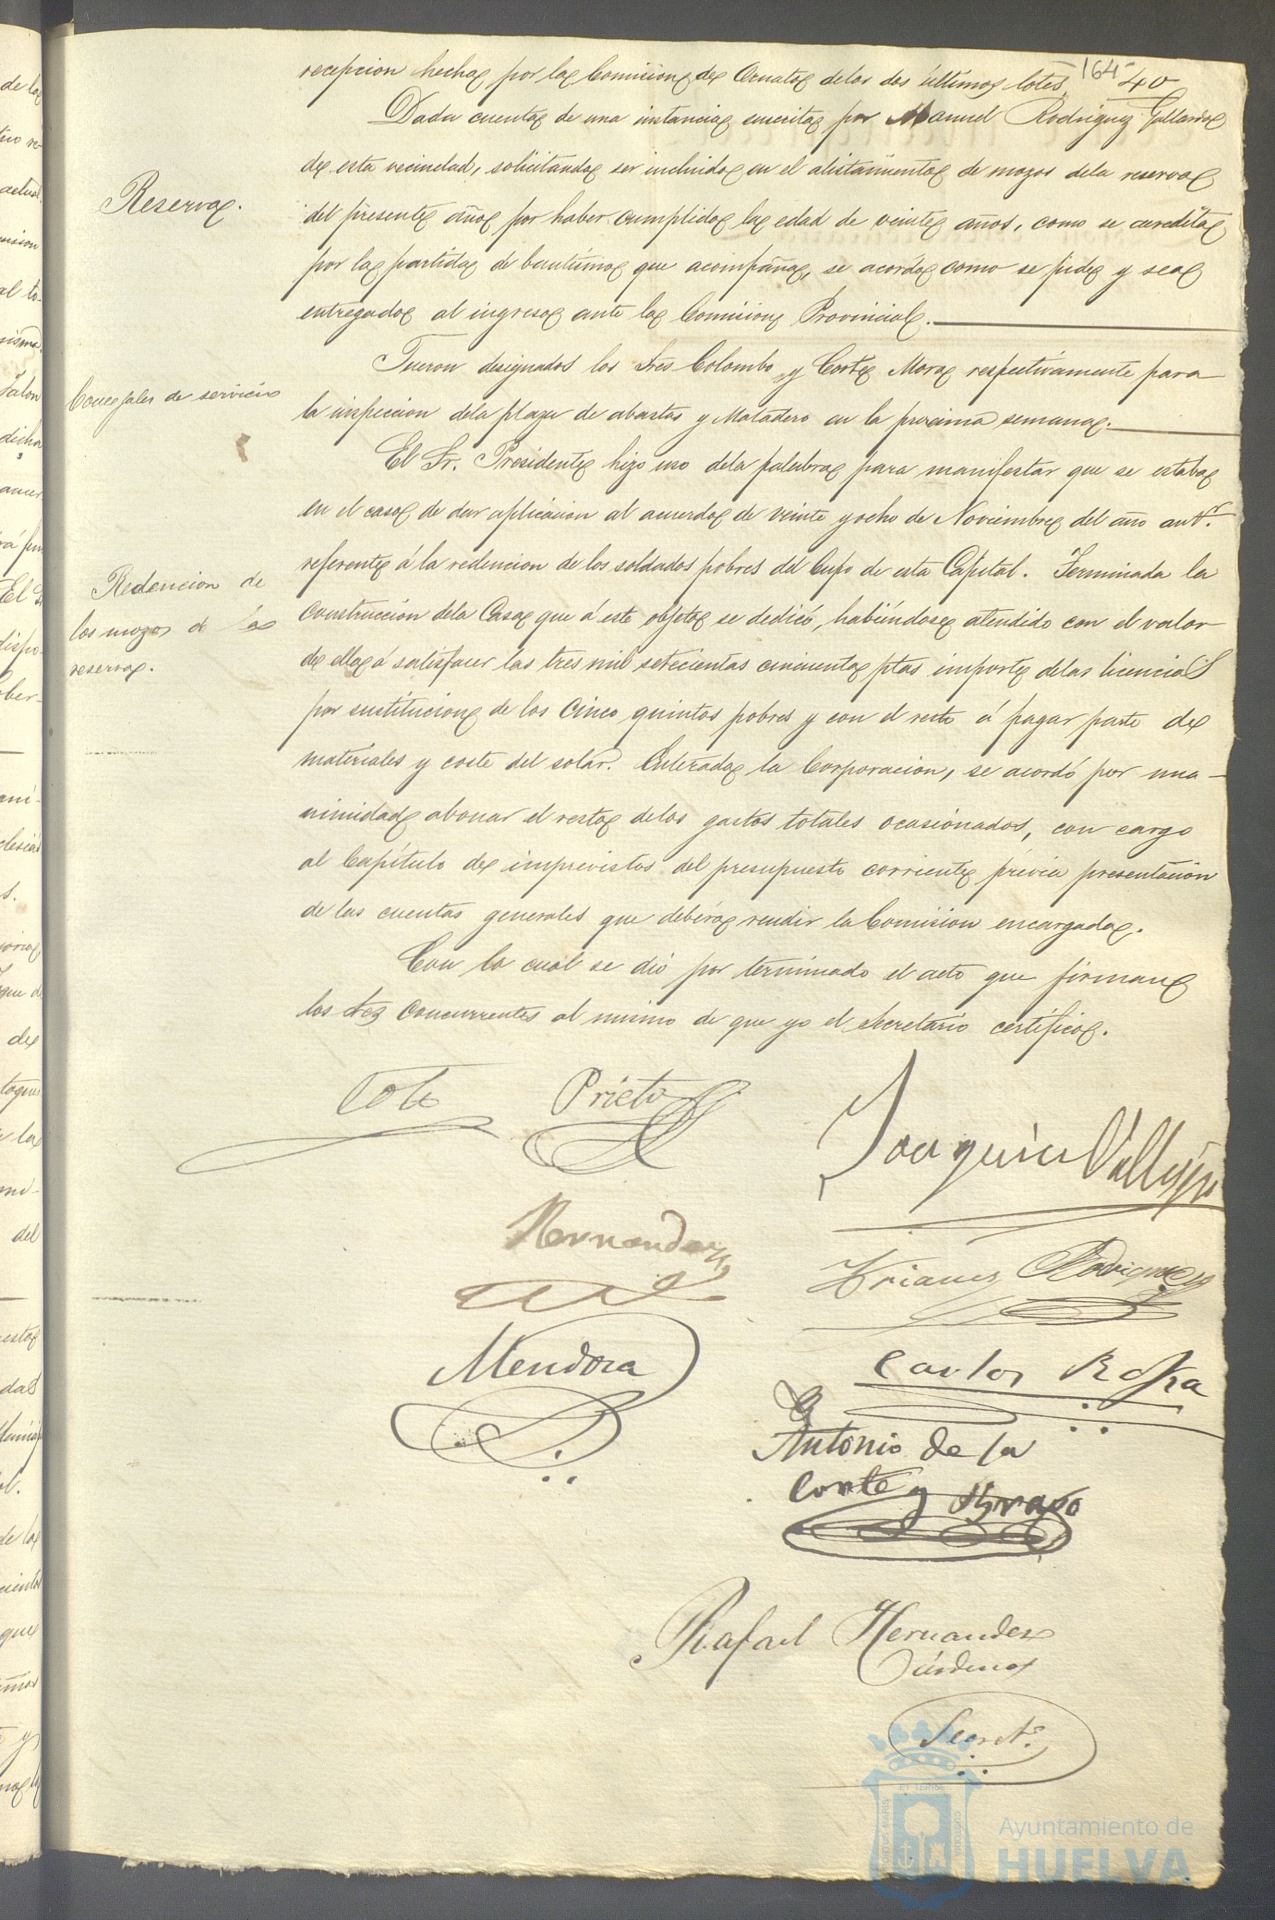 164
40
recepcion hecha por la Comision de Ornato de los dos últimos lotes.
Dada cuenta de una instancia suscrita por Manuel Rodriguez Gallardo
de esta vecindad, solicitando ser incluido en el alistamiento de mozos de la reserva
Reserva.
del presente año por haber cumplido la edad de veinte años, como se acredita
por la partida de bautismo que acompaña, se acordó como se pide y sea
entregado al ingreso ante la Comision Provincial.
Fueron designados los Sres Colombo y Corte Mora respectivamente para
Concejales de servicio
la inspeccion de la plaza de abastos y Matadero en la procsima semana.
El Sr. Presidente hizo uso de la palabra para manifestar que se estaba
en el caso de dar aplicacion al acuerdo de veinte y ocho de Noviembre del año antr.
referente á la redencion de los soldados pobres del Cupo de esta Capital. Terminada la
Redencion de
los mozos de la
reserva.
construccion de la Casa que á este objeto se dedicó, habiéndose atendido con el valor
de ella á satisfacer las tres mil setecientas cincuenta ptas importe de las licencias
por sustitucion de los cinco quintos pobres y con el resto á pagar parte de
materiales y coste del solar. Enterada la Corporacion, se acordó por una-
nimidad abonar el resto de los gastos totales ocasionados, con cargo
al Capítulo de imprevistos del presupuesto corriente prévia presentación
de las cuentas generales que deberá rendir la Comision encargada.
Con lo cual se dió por terminado el acto que firman
los Sres concurrentes al mismo de que yo el Secretario certifico.
Prieto
Joaquin Vallejo
Hernandez
Rodriguez
Mendoza
Carlos
Antonio de la
Corte y Bravo
Rafael Hernandez
Cárdenas
Secret.º
Ayuntamiento de
HUELVA